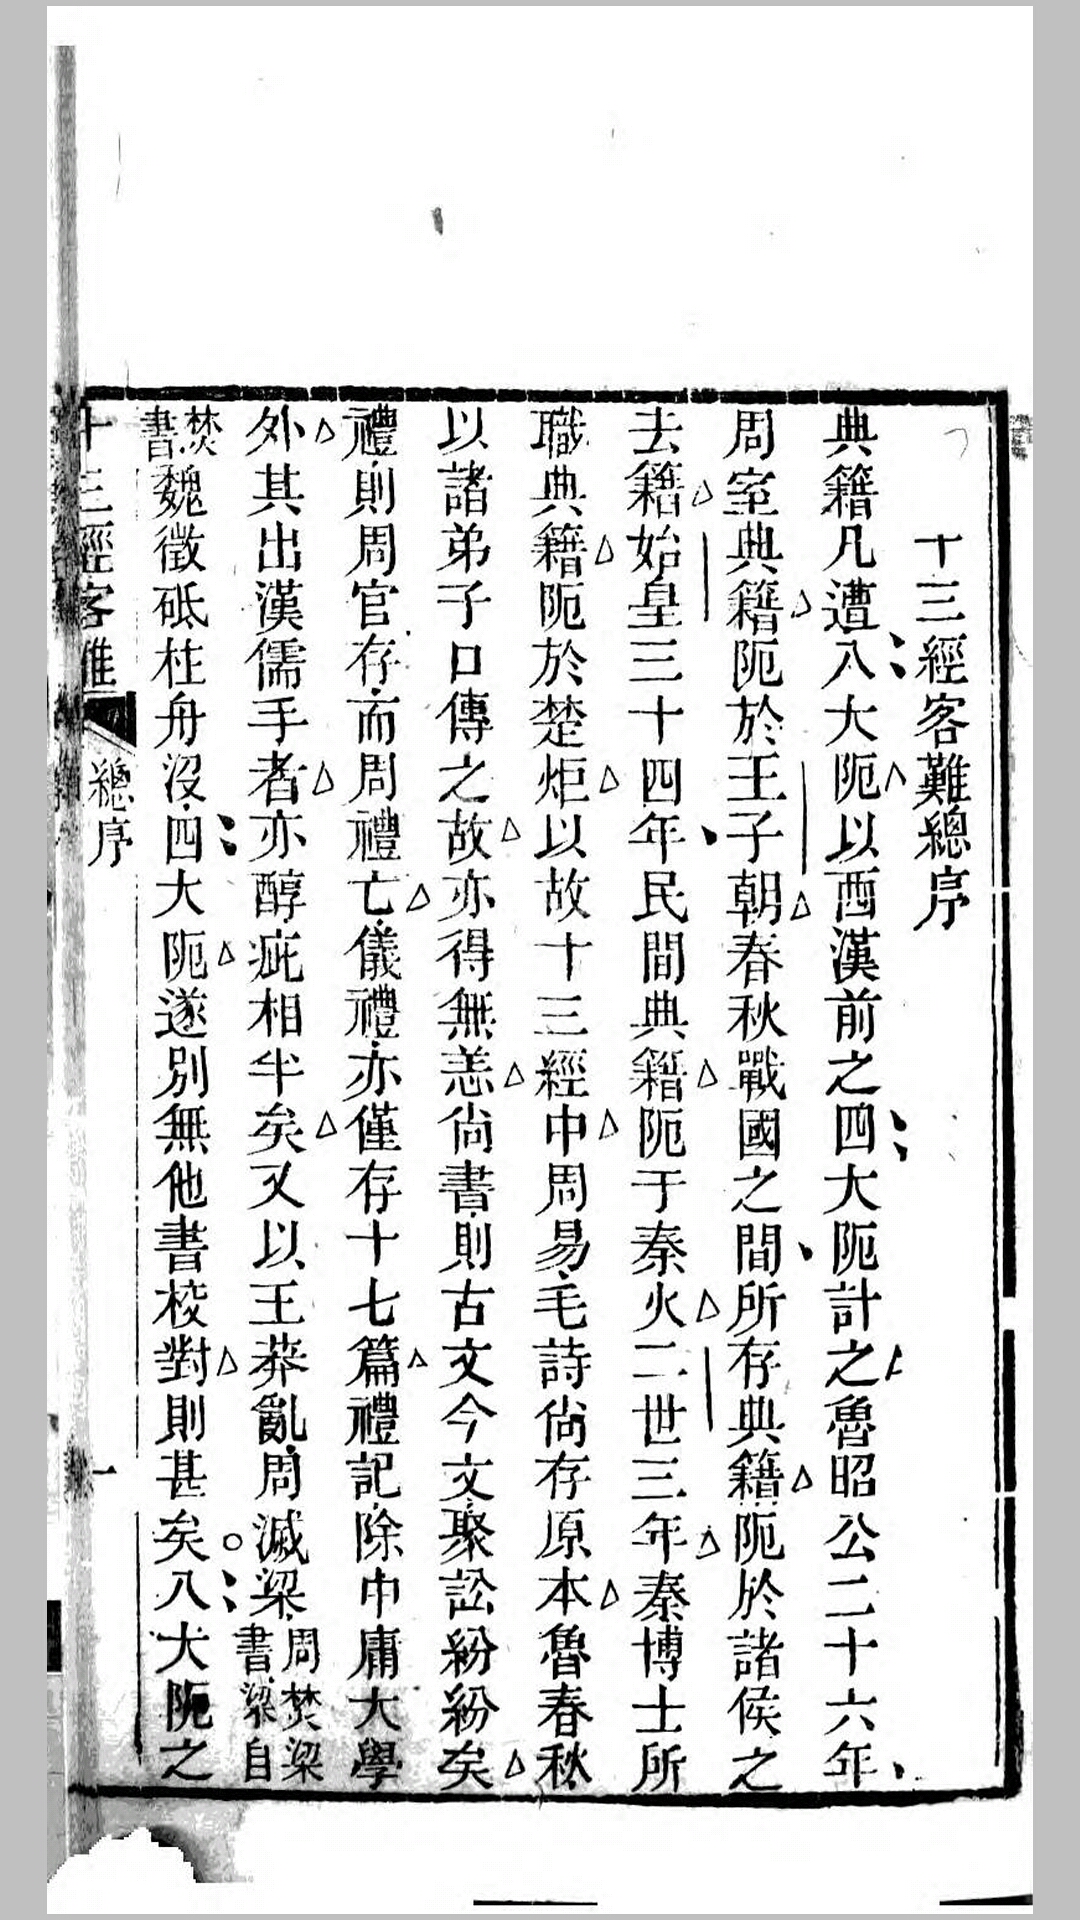 十三經客難總序
典籍凡遭八大阨以西漢前之四大阨計之魯昭公二十六年
周室典籍阨於王子朝春秋戰國之間所存典籍阨於諸侯之
去籍始皇三十四年民間典籍阨于秦火二世三年秦博士所
職典籍阨於楚炬以故十三經中周易毛詩尙存原本魯春秋
以諸弟子口傳之故亦得無恙尙書則古文今文聚訟紛紛矣
禮則周官存而周禮亡儀禮亦僅存十七篇禮記除中庸大學
外其出漢儒手者亦醇疵相半矣又以王莽亂周滅梁周焚梁書梁自
焚書魏徵砥柱舟沒四大阨遂別無他書校對則甚矣八大阨之
十三經客難
總序
一